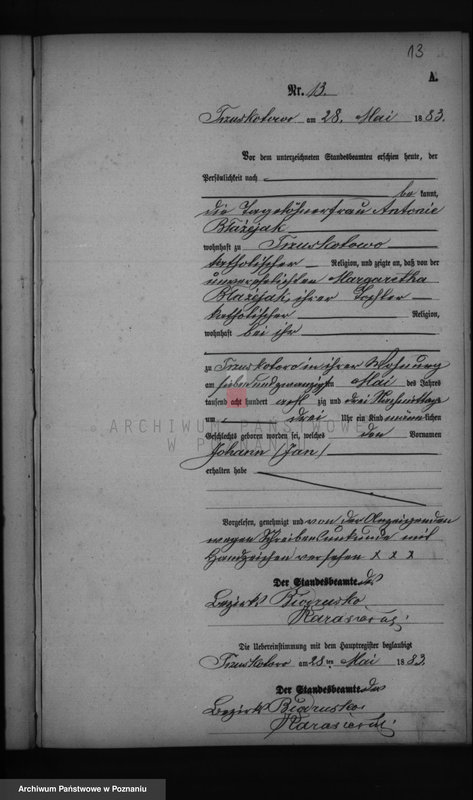 13
A.
Nr. 13.
Trzuskotowo am 28. Mai 1883.
Vor dem unterzeichneten Standesbeamten erschien heute, der
Persönlichkeit nach
be kannt,
die Tagelöhnerfrau Antonie
Błażejak
wohnhaft zu Trzuskotowo
katholischer Religion, und zeigte an, daß von der
unverehelichten Margaretha
Błażejak, ihrer Tochter
katholischer Religion,
wohnhaft bei ihr
zu Trzuskotowo in ihrer Wohnung
am sieben und zwanzigsten Mai des Jahres
tausend acht hundert acht zig und drei Nachmittags
um drei Uhr ein Kind männlichen
Geschlechts geboren worden sei, welches den Vornamen
Johann /Jan/
erhalten habe
ARCHIWUM PAŃSTWOWE
W POZNANIU
Vorgelesen, genehmigt und von der Anzeigenden
wegen Schreibensunkunde mit
Handzeichen versehen x x x
Der Standesbeamte des
Bezirks Biedrusko
Die Uebereinstimmung mit dem Hauptregister beglaubigt
Trzuskotowo am 28ten Mai 1883.
Der Standesbeamte des
Bezirks Biedrusko
Archiwum Państwowe w Poznaniu